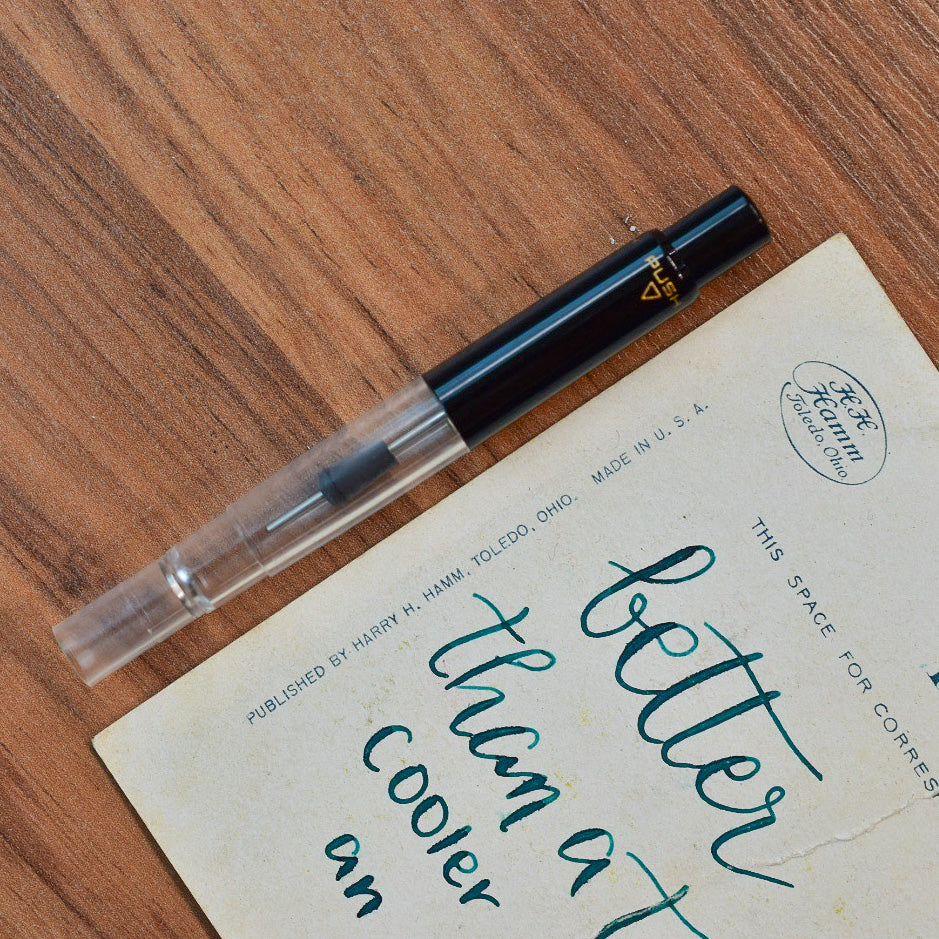 PUSH
H.H.
Hamm
Toledo, Ohio.
PUBLISHED BY HARRY H. HAMM, TOLEDO, OHIO. MADE IN U. S. A.
THIS SPACE FOR
better
than a
cooler
an